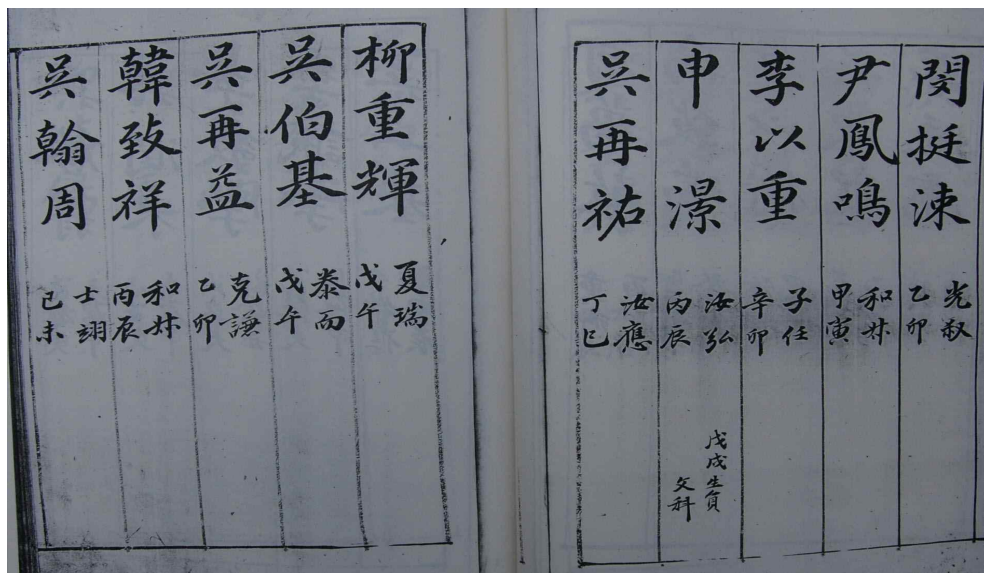 閔挺洙
光叔
乙卯
尹鳳鳴
和叔
甲寅
李以重
子任
辛卯
申澋
汝弘
丙辰
戊戌生員
文科
吳再祐
汝應
丁巳
柳重輝
夏瑞
戊午
吳伯基
泰而
戊午
吳再益
克謙
乙卯
韓致祥
和叔
丙辰
吳翰周
士翊
己未